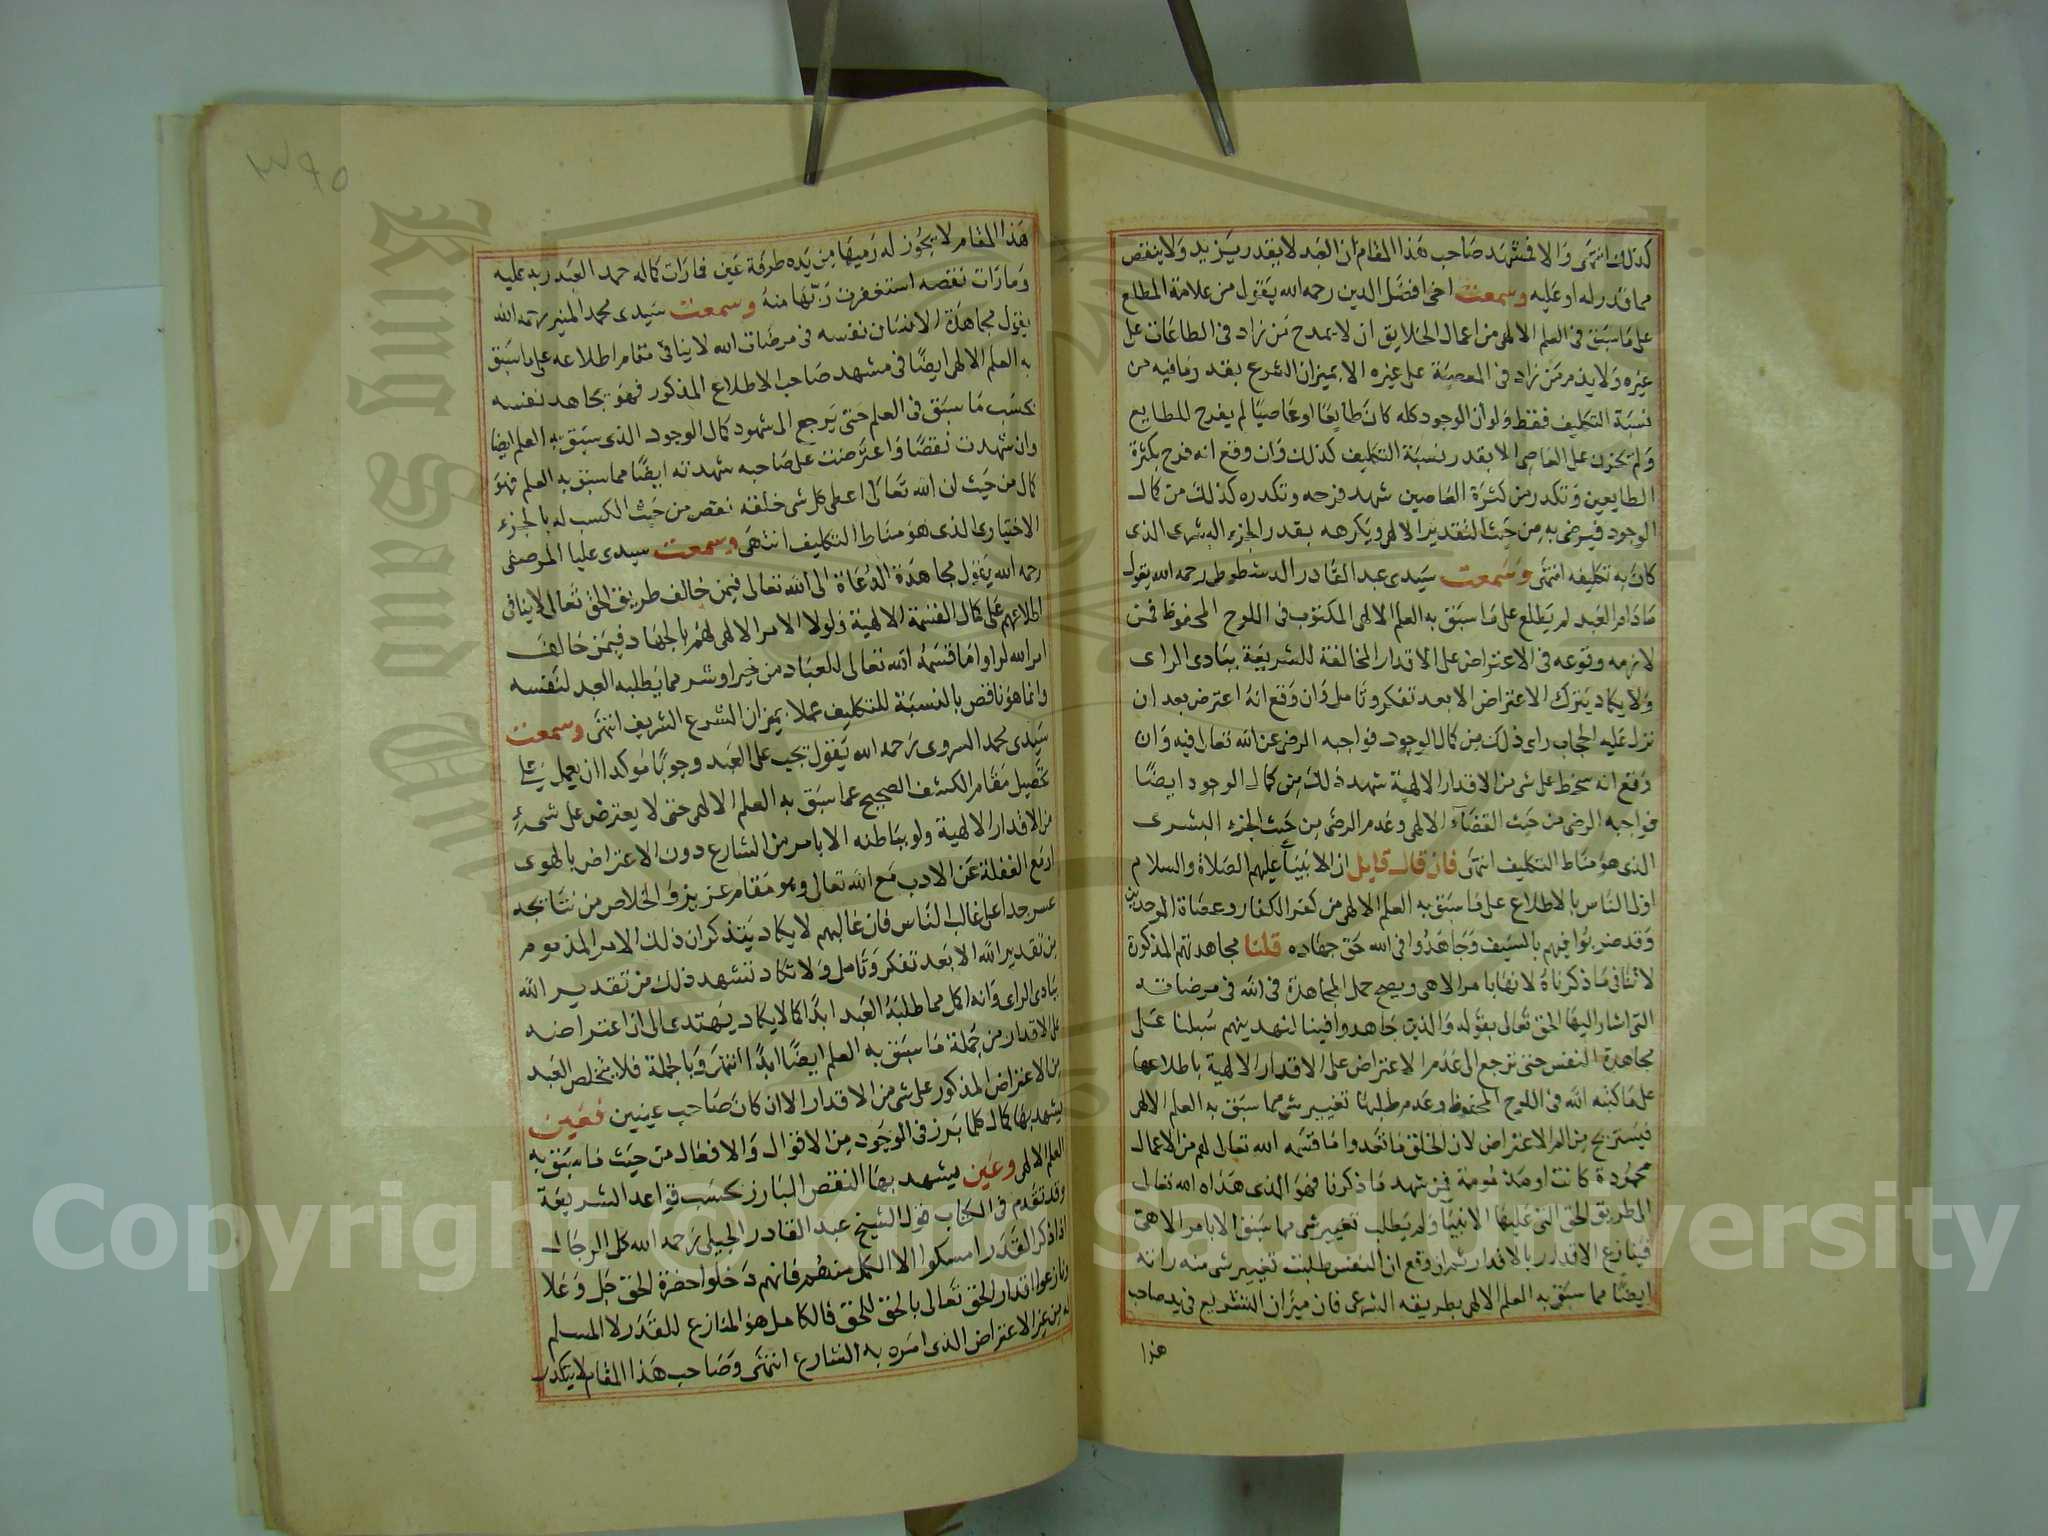 كذلك انتهى والا فمشهد صاحب هذا المقام ان العبد لا يقدر يزيد ولا ينقص
مما قدر له او عليه وسمعت اخى افضل الدين رحمه الله يقول من علامة المطلع
على ما سبق فى العلم الالهى من اعمال الخلايق ان لا يمدح من زاد فى الطاعات على
غيره ولا يذم من زاد فى المعصية على غيره الا بميزان الشرع بقدر ما فيه من
نسبة التكليف فقط ولو ان الوجود كله كان طايعا او عاصيا لم يفرح للطايع
ولم يحزن على العاصى الا بقدر نسبة التكليف كذلك وان وقع انه فرح بكثرة
الطايعين وتكدر من كثرة العاصين شهد فرحه وتكدره كذلك من كمال
الوجود فيرضى به من حيث التقدير الالهى ويكرهه بقدر الجزء البشرى الذى
كان به تكليفه انتهى وسمعت سيدى عبد القادر الدشطوطى رحمه الله يقول
ما دام العبد لم يطلع على ما سبق به العلم الالهى المكتوب فى اللوح المحفوظ فمن
لازمه وقوعه فى الاعتراض على الاقدار المخالفة للشريعة ببادى الراى
ولا يكاد يترك الاعتراض الا بعد تفكر وتامل وان وقع انه اعترض بعد ان
نزل عليه الحجاب راى ذلك من كمال الوجود فواجبه الرضى عن الله تعالى فيه وان
وقع انه سخط على شى من الاقدار الالهية شهد ذلك من كمال الوجود ايضا
فواجبه الرضى من حيث القضآء الالهى وعدم الرضى من حيث الجزء البشرى
الذى هو مناط التكليف انتهى فان قال قايل ان الانبيآء عليهم الصلاة والسلام
اولى الناس بالاطلاع على ما سبق به العلم الالهى من كفر الكفار وعصاة الموحدين
وقد ضربوا فيهم بالسيف وجاهدوا فى الله حق جهاده قلنا مجاهدتهم المذكورة
لا تنافى ما ذكرناه لانها بامر الاهى ويصح حمل المجاهدة فى الله فى مرضاته
التى اشار اليها الحق تعالى بقوله والذين جاهدوا فينا لنهدينهم سبلنا على
مجاهدة النفس حتى ترجع الى عدم الاعتراض على الاقدار الالهية باطلاعها
على ما كتبه الله فى اللوح المحفوظ وعدم طلبها تغيير شى مما سبق به العلم الالهى
فيستريح من الم الاعتراض لان الخلق ما تعدوا ما قسمه الله تعالى لهم من الاعمال
محمودة كانت او مذمومة فمن شهد ما ذكرنا فهو الذى هداه الله تعالى
الى طريق الحق التى عليها الانبيا ولم يطلب تغيير شى مما سبق الا بامر الاهى
فينازع الاقدار بالاقدار ثم ان وقع ان النفس طلبت تغيير شى منه راته
ايضا مما سبق به العلم الالهى بطريقه الشرعى فان ميزان التشريع فى يد صاحب
هذا
هذا المقام لا يجوز له رميها من يده طرفة عين فما رات كماله حمد العبد ربه عليه
وما رات نقصه استغفرت ربها منه وسمعت سيدى محمد المنير رحمه الله
يقول مجاهدة الانسان نفسه فى مرضات الله لا ينافى مقام اطلاعه على ما سبق
به العلم الالهى ايضا فى مشهد صاحب الاطلاع المذكور فهو يجاهد نفسه
بحسب ما سبق فى العلم حتى يرجع الى شهود كمال الوجود الذى سبق به العلم ايضا
وان شهدت نقصا واعترضت على صاحبه شهدته ايضا مما سبق به العلم فهو
كمال من حيث ان الله تعالى اعطى كل شى خلقه نقص من حيث الكسب له بالجزء
الاختيارى الذى هو مناط التكليف انتهى وسمعت سيدى عليا المرصفى
رحمه الله يقول مجاهدة الدعاة الى الله تعالى فيمن خالف طريق الحق تعالى لا ينافى
اطلاعهم على كمال القسمة الالهية ولولا الامر الالهى لهم بالجهاد فيمن خالف
امر الله لراوا ما قسمه الله تعالى للعباد من خير او شر مما يطلبه العبد لنفسه
وانما هو ناقص بالنسبة للتكليف عملا بميزان الشرع الشريف انتهى وسمعت
سيدى محمد السروى رحمه الله يقول يجب على العبد وجوبا موكدا ان يعمل على
تحصيل مقام الكشف الصحيح عما سبق به العلم الالهى حتى لا يعترض على شىء
من الاقدار الالهية ولو بباطنه الا بامر من الشارع دون الاعتراض بالهوى
او مع الغفلة عن الادب مع الله تعالى وهو مقام عزيز والخلاص من نتايجه
عسر جدا على غالب الناس فان غالبهم لا يكاد يتذكر ان ذلك الامر المذموم
من تقدير الله الا بعد تفكر وتامل ولا تكاد تشهد ذلك من تقدير الله
ببادى الراى وانه اكل مما طلبه العبد ابدا كما لا يكاد يهتدى الى ان اعتراضه
على الاقدار من جملة ما سبق به العلم ايضا ابدا انتهى وبالجملة فلا يتخلص العبد
من الاعتراض المذكور على شى من الاقدار الا ان كان صاحب عينين فعين
يشهد بها كمال كلما برز فى الوجود من الاقوال والافعال من حيث ما سبق به
العلم الالهى وعين يشهد بها النقص البارز بحسب قواعد الشريعة
وقد تقدم فى الكتاب قول الشيخ عبد القادر الجيلى رحمه الله كل الرجال
اذا ذكر القدر امسكوا الا الكمل منهم فانهم دخلوا حضرة الحق جل وعلا
ونازعوا اقدار الحق تعالى بالحق للحق فالكامل هو المنازع للقدر لا المسلم
له من غير الاعتراض الذى امره به الشارع انتهى وصاحب هذا المقام لا يتكدر
Copyright © King Saud University